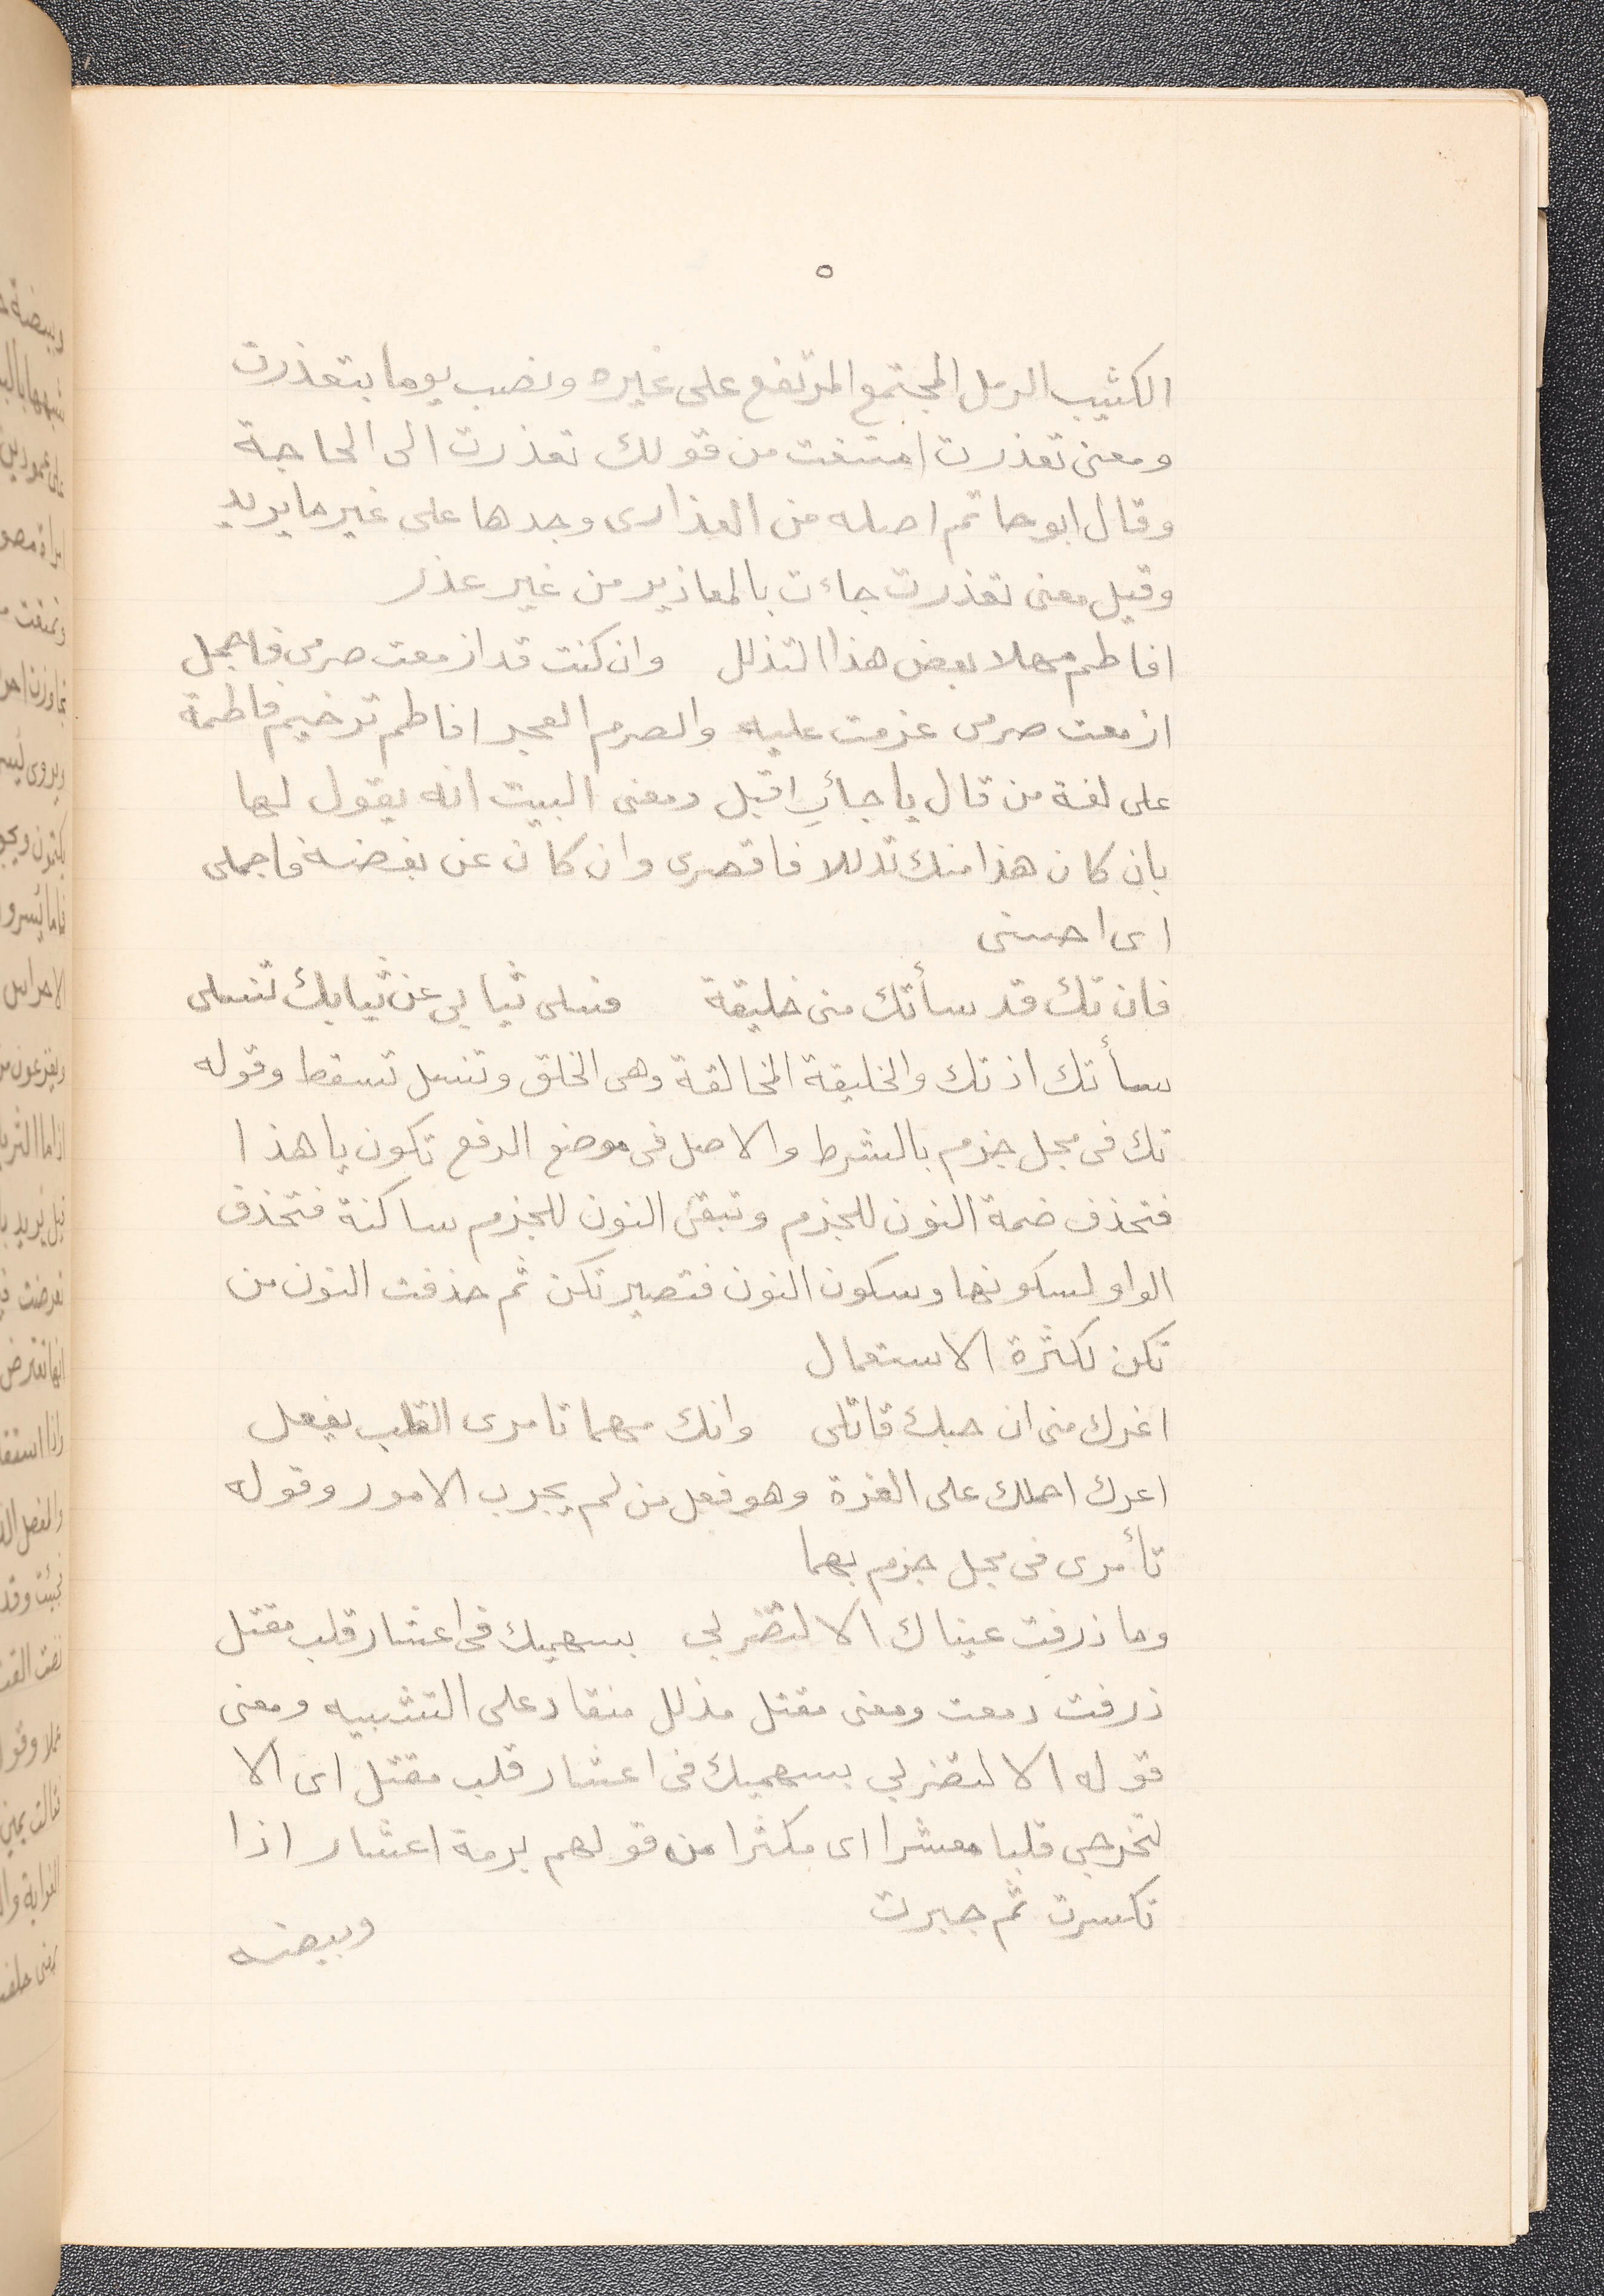 ٥
الكثيب الرمل المجتمع المرتفع على غيره ونصب يوما بتعذرت
ومعنى تعذرت امتنعت من قولك تعذرت الى الحاجة
وقال ابو حاتم اصله من العذارى وجدها على غير ما يريد
وقيل معنى تعذرت جاءت بالمعاذير من غير عذر
افاطم مهلا بعض هذا التذلل وان كنت قد ازمعت صرمى فاجمل
ازمعت صرمى عزمت عليه والصرم الهجر افاطم ترخيم فاطمة
على لغة من قال يا جائِ اقبل ومعنى البيت انه يقول لها
بان كان هذا منك تدللا فاقصرى وان كان عن بغضه فاجملى
اى احسنى
فان تك قد سأتك منى خليقة فسلى ثيابي عن ثيابك تنسلى
سأتك اذتك والخليقة المخالقة وهى الخلق وتنسل تسقط وقوله
تك فى محل جزم بالشرط والاصل فى موضع الرفع تكون يا هذا
فتحذف ضمة النون للجزم وتبقى النون للجزم ساكنة فتحذف
الواو لسكونها وسكون النون فتصير تكن ثم حذفت النون من
تكن لكثرة الاستعمال
اغرك منى ان حبك قاتلى وانك مهما تامرى القلب يفعل
اغرك احملك على الغرة وهو فعل من لم يجرب الامور وقوله
تأمرى فى محل جزم بهما
وما ذرفت عيناك الا لتضربي بسهميك فى اعشار قلب مقتل
ذرفت دمعت ومعنى مقتل مذلل منقاد على التشبيه ومعنى
قوله الا لتضربي بسهميك فى اعشار قلب مقتل اى الا
لتخرجي قلبا معشرا اى مكثرا من قولهم برمة اعشار اذا
تكسرت ثم جبرت
وبيضه